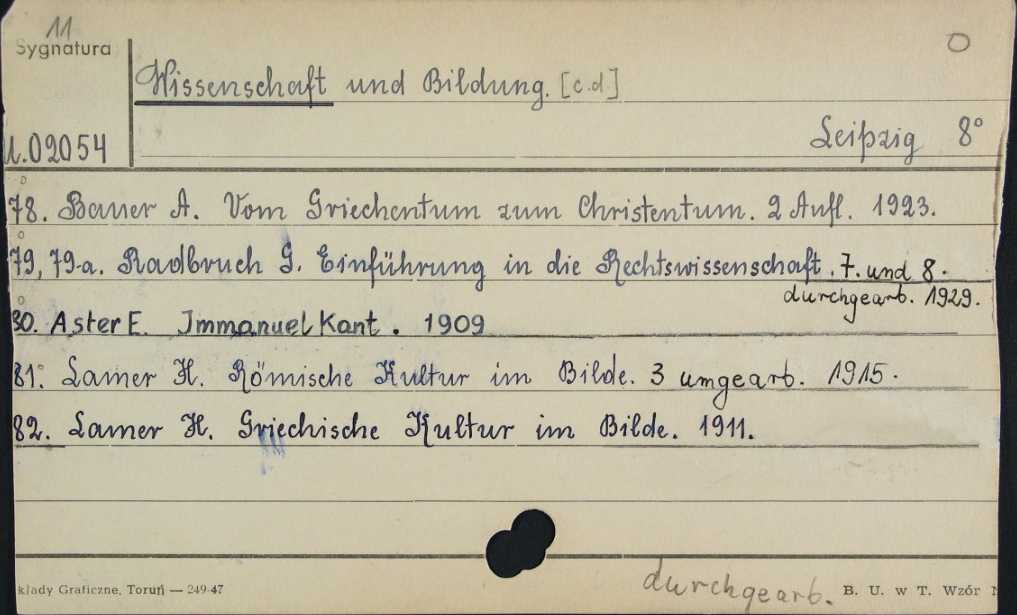 11
Sygnatura
O
Wissenschaft und Bildung. [c.d.]
U.02054
Leipzig 8°
78. Bauer A. Vom Griechentum zum Christentum. 2 Aufl. 1923.
79, 79-a. Radbruch G. Einführung in die Rechtswissenschaft. 7. und 8.
durchgearb. 1929.
80. Aster E. Immanuel Kant. 1909
81. Lamer H. Römische Kultur im Bilde. 3 umgearb. 1915.
82. Lamer H. Griechische Kultur im Bilde. 1911.
durchgearb.
kłady Graficzne, Toruń — 249-47
B. U. w T. Wzór